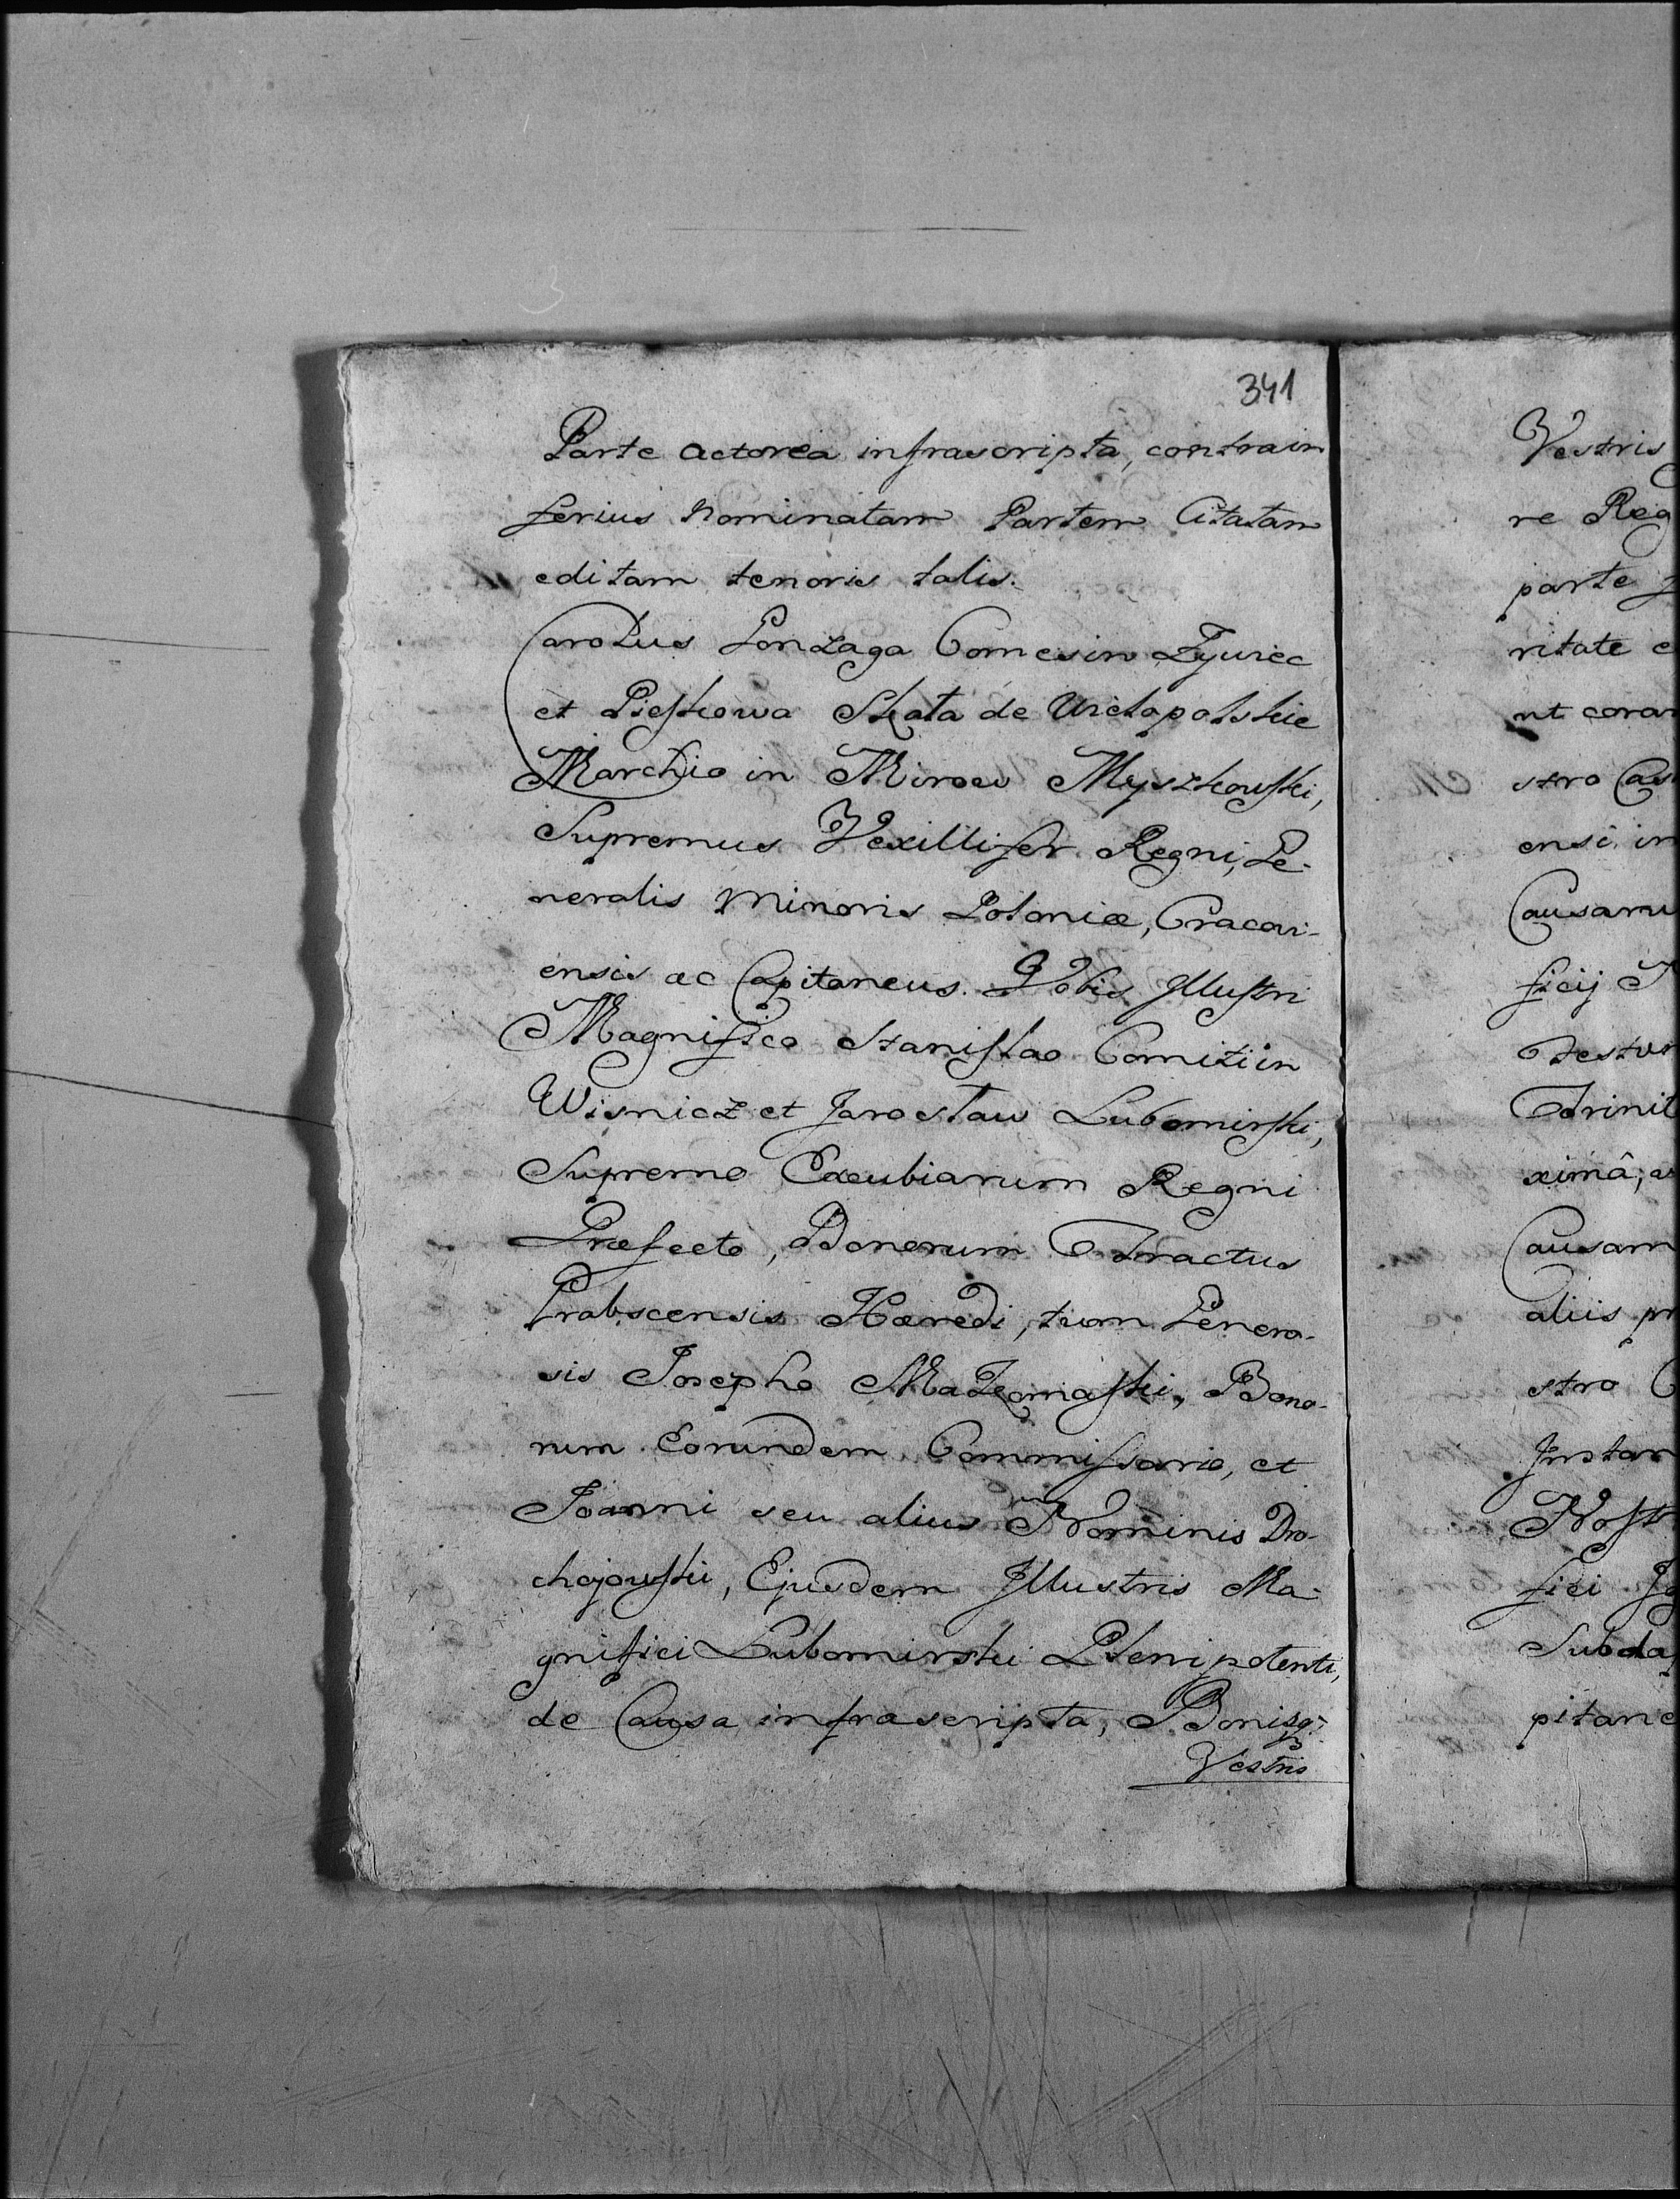 341
Parte actorea infrascripta, contra in
ferius nominatam Partem Citatam
editam tenoris talis.
Carolus Gonzaga Comes in Żywiec
et Pieskowa Skała de Wielopolskie
Marchio in Mirow Myszkowski,
Supremus Vexillifer Regni, Ge-
neralis Minoris Poloniæ, Cracovi-
ensis ac Capitaneus. Vobis Illustri
Magnifico Stanislao Comiti in
Wisnicz et Jarosław Lubomirski,
Supremo Excubiarum Regni
Præfecto, Bonorum Tractus
Grabscensis Hæredi, tum Genero-
sis Josepho Bono-
rum Eorundem Commissario, et
Joanni seu alius Nominis Dro-
chojowski, Ejusdem Illustris Ma-
gnifici Lubomirski Plenipotenti,
de Causa infrascripta, Bonisq;
Vestris
Vestris
re Reg
parte
ritate
nt coram
stro Cas
ensi in
Causaru
ficij
Festum
Trinit
ximâ, a
Causam
aliis pr
stro C
Instan
Nostr
fici
Subda
pitane